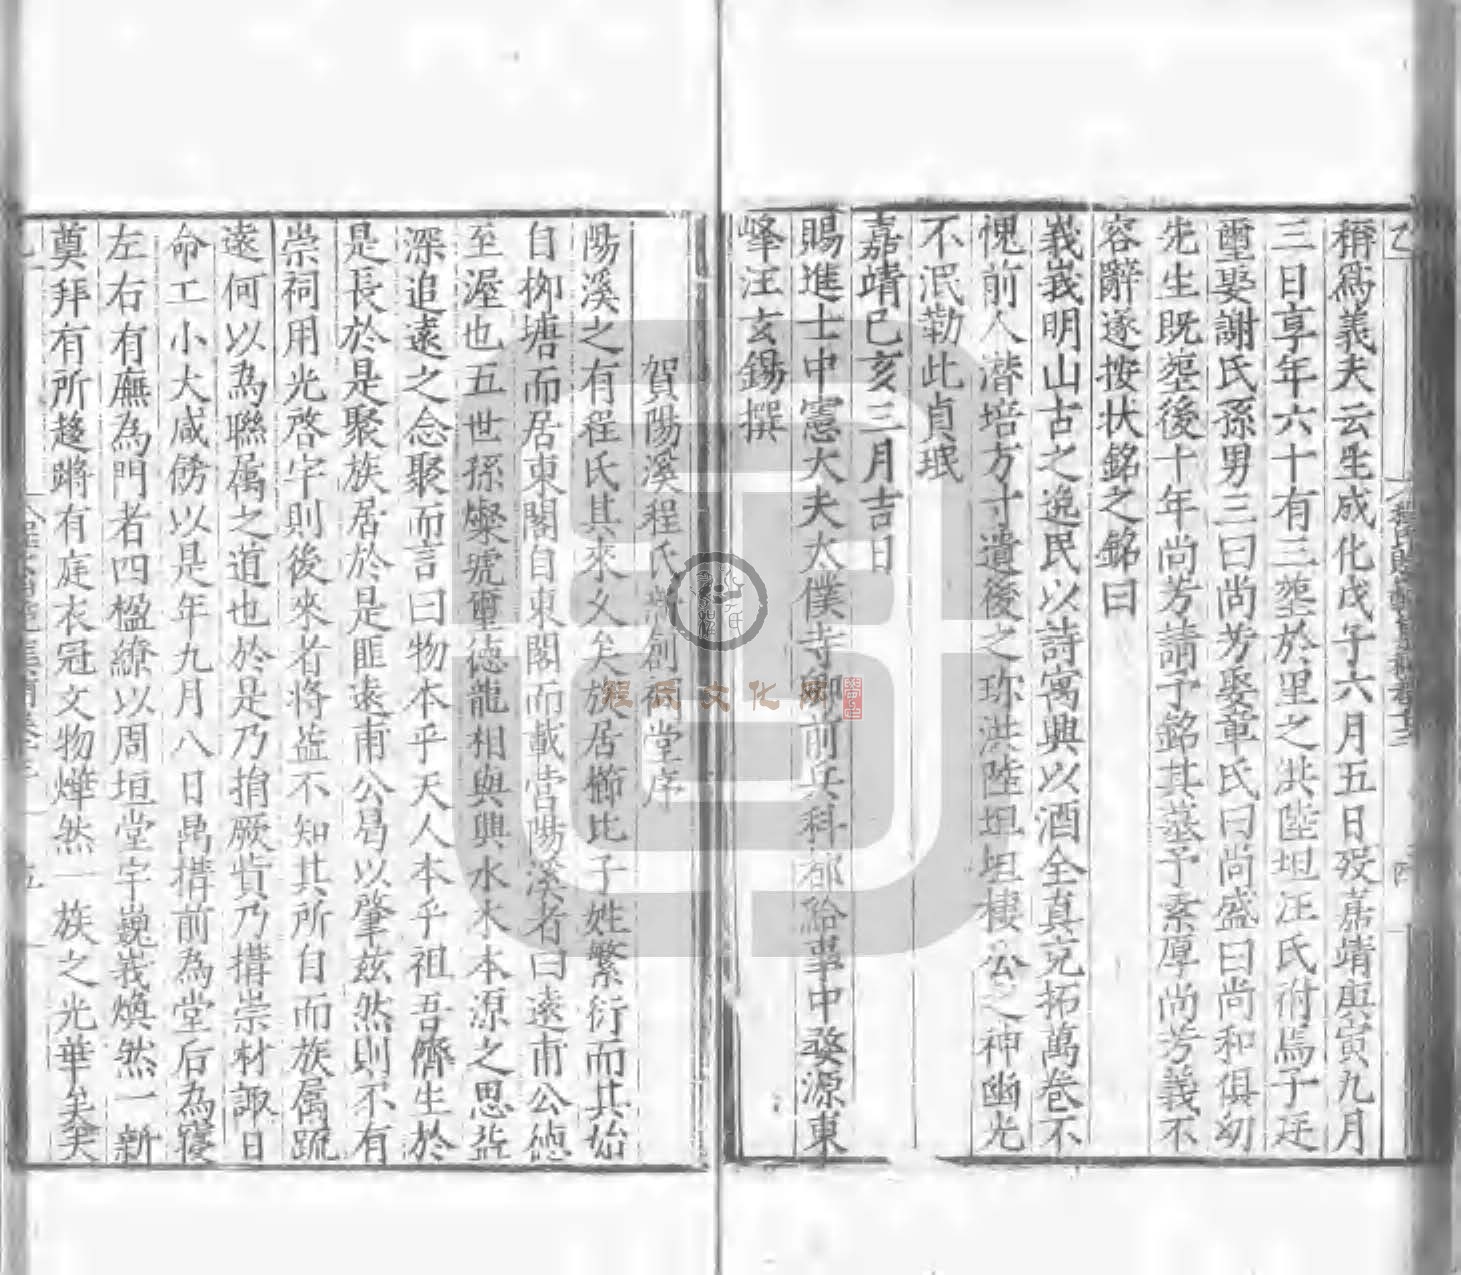 稱爲義夫云生成化戊子六月五日歿嘉靖庚寅九月
三日享年六十有三塟於里之洪陸坦汪氏祔焉子廷
璽娶謝氏孫男三曰尚芳娶章氏曰尚盛曰尚和俱幼
先生既塟後十年尚芳請予銘其墓予素厚尚芳義不
容辭遂按狀銘之銘曰
義峩明山古之逸民以詩寓興以酒全真克拓萬卷不
愧前人潜培方寸遺後之珎洪陸坦坦棲公之神幽光
不泯勒此貞珉
嘉靖己亥三月吉日
賜進士中憲大夫太僕寺卿前兵科都給事中婺源東
峰汪玄錫撰
賀陽溪程氏創祠堂序
陽溪之有程氏其來久矣族居櫛比子姓繁衍而其始
自栁塘而居東閣自東閣而載當陽溪者曰遠甫公德
至渥也五世孫燦號璽德龍相與興水木本源之思益
深追遠之念聚而言曰物本乎天人本乎祖吾儕生於
是長於是聚族居於是匪遠甫公曷以肇兹然則不有
崇祠用光啓宇則後來者将益不知其所自而族属䟽
遠何以為聯属之道也於是乃捐厥貲乃搆崇材諏日
命工小大咸俻以是年九月八日鼎搆前為堂后為寢
左右有廡為門者四楹繚以周垣堂宇巍峩煥然一新
奠拜有所趍蹌有庭衣冠文物燁然一族之光華矣夫
程氏文化网